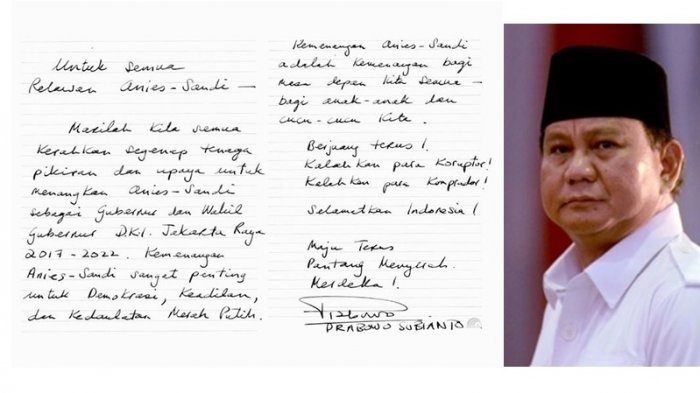 Untuk semua
Relawan Anies-Sandi —
Marilah kita semua
Kerahkan segenap tenaga
pikiran dan upaya untuk
menangkan Anies-Sandi
sebagai Gubernur dan Wakil
Gubernur D.K.I. Jakarta Raya
2017-2022. Kemenangan
Anies-Sandi sangat penting
untuk Demokrasi, Keadilan,
dan Kedaulatan Merah Putih.
Kemenangan Anies-Sandi
adalah Kemenangan bagi
masa depan kita semua —
bagi anak-anak dan
cucu-cucu kita.
Berjuang terus!
Kalahkan para Koruptor!
Kalahkan para Komprador!
Selamatkan Indonesia!
Maju Terus
Pantang Menyerah.
Merdeka!
Prabowo
PRABOWO SUBIANTO